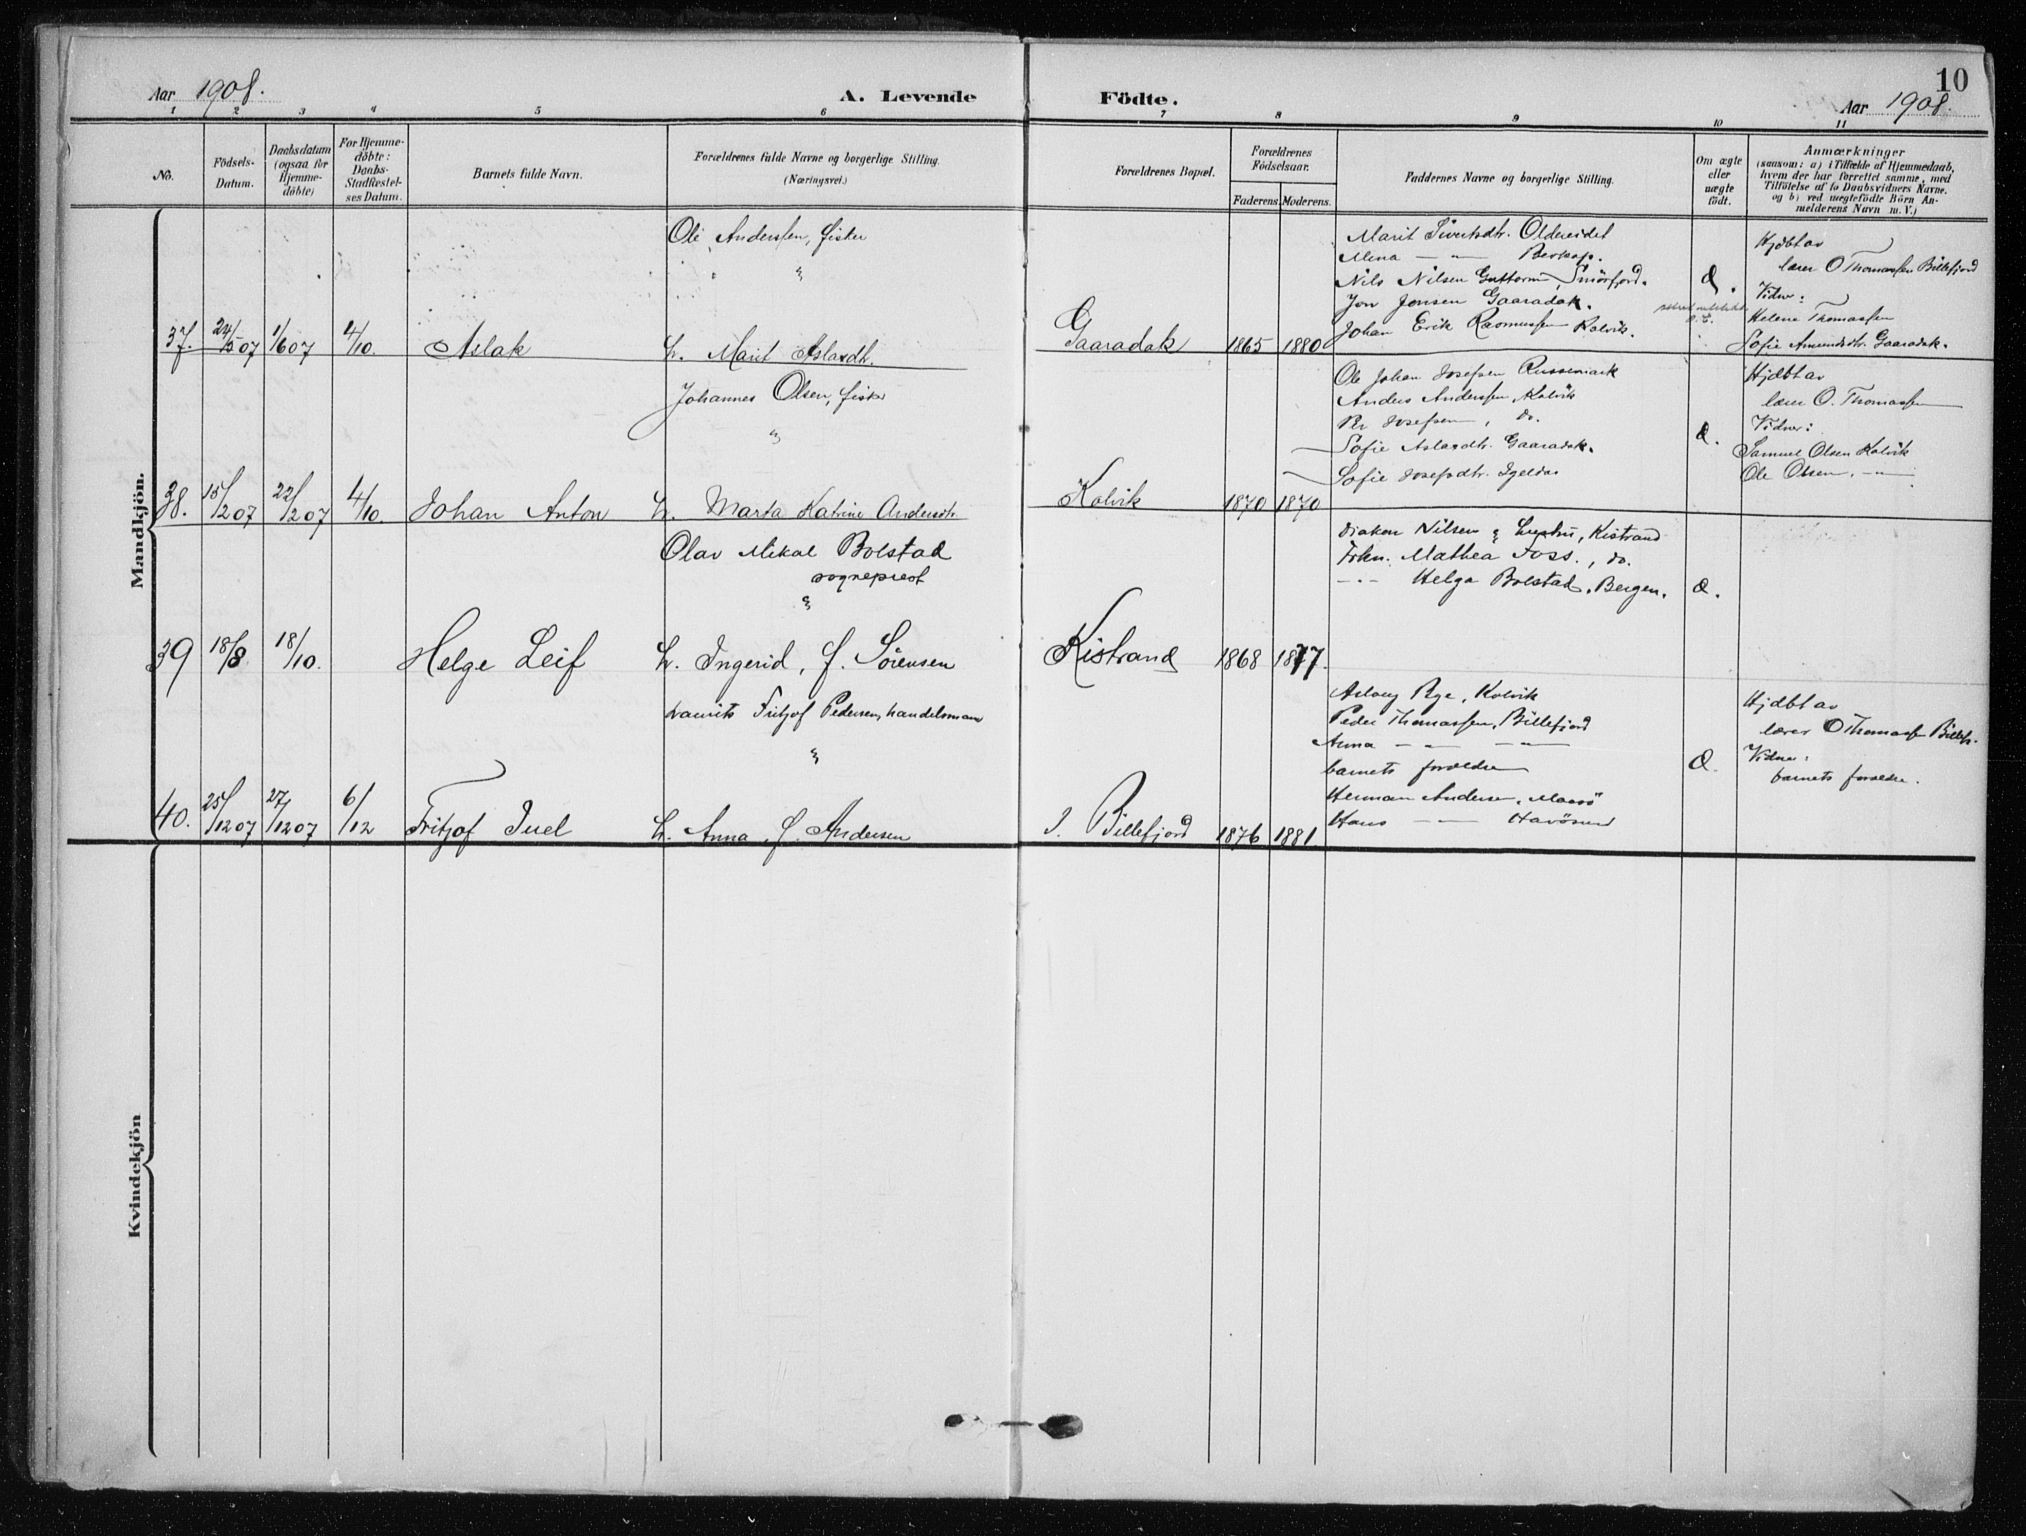 10
Aar 1908.
A. Levende Födte.
Aar 1908.
1 2 3 4 5 6 7 8 9 10 11
No.
Födsels-
Datum.
Daabsdatum
(ogsaa for
Hjemme-
döbte)
For Hjemme-
döbte:
Daabs-
Stadfæstel-
ses Datum.
Barnets fulde Navn.
Forældrenes fulde Navne og borgerlige Stilling.
(Næringsvei.)
Forældrenes Bopæl.
Forældrenes
Födselsaar.
Faderens. Moderens.
Faddernes Navne og borgerlige Stilling.
Om ægte
eller
uægte
födt.
Anmærkninger
(saasom: a) i Tilfælde af Hjemmedaab,
hvem der har forrettet samme, med
Tilföielse af to Daabsvidners Navne.
og b) ved uægtefödte Börn An-
melderens Navn m. V.)
Mandkjön.
37. 24/5 07 1/6 07 4/10. Aslak
Ole Anderssen, fisker
"
h. Marit Aslaksdtr.
Gaaradak 1865 1880
Marit Sivertsdtr. Oldereidet
Mena — " —
Nils Nilsen Guttorm, Smörfjord.
Jon Jonsen Gaaradak.
Johan Erik Rasmussen Kolvik.
Hjdbt av
lærer O Thomassen Billefjord
Vidner:
Helene Thomassen
Sofie Amundsdtr. Gaaradak.
38. 15/12 07 22/12 07 4/10. Johan Anton
Johannes Olsen, fisker
"
h. Marta Katrine Andersdtr.
Kolvik 1870 1870
Ole Johan Josefsen Russemark
Anders Anderssen, Kolvik
Per Josefsen, do.
Sofie Aslaksdtr. Gaaradak.
Sofie Josefsdtr. Igeldas
Hjdbt av
lærer O. Thomassen
Vidner:
Samuel Olsen Kolvik
Ole Olsen, — " —
39 18/8 18/10. Helge Leif
Olav Mikal Bolstad
sogneprest
"
h. Ingerid, f. Sörensen
Kistrand 1868 1877.
Diakon Nilsen & hustru, Kistrand
Frkn. Mathea Foss., do.
— " — Helga Bolstad, Bergen.
40. 25/12 07 27/12 07 6/12 Fritjof Juel
Laurits Fritjof Pedersen, handelsmann
"
h. Anna, f. Andersen
I. Billefjord 1876 1881.
Aslaug Rye, Kolvik
Peder Thomassen, Billefjord
Anna — " — — " —
barnets forældre
Herman Andersen, Maasö
Hans — " — Havösund
Hjdbt av
lærer O Thomassen Billefj.
Vidner:
barnets forældre.
Kvindekjön